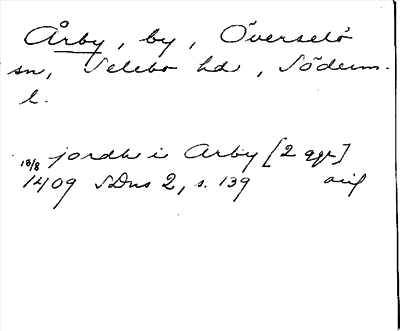 Årby, by, Överselö
sn, Selebo hd, Söderm.
l.
18/8 jordh i Arby [2 ggr]
1409 SDns 2, s. 139